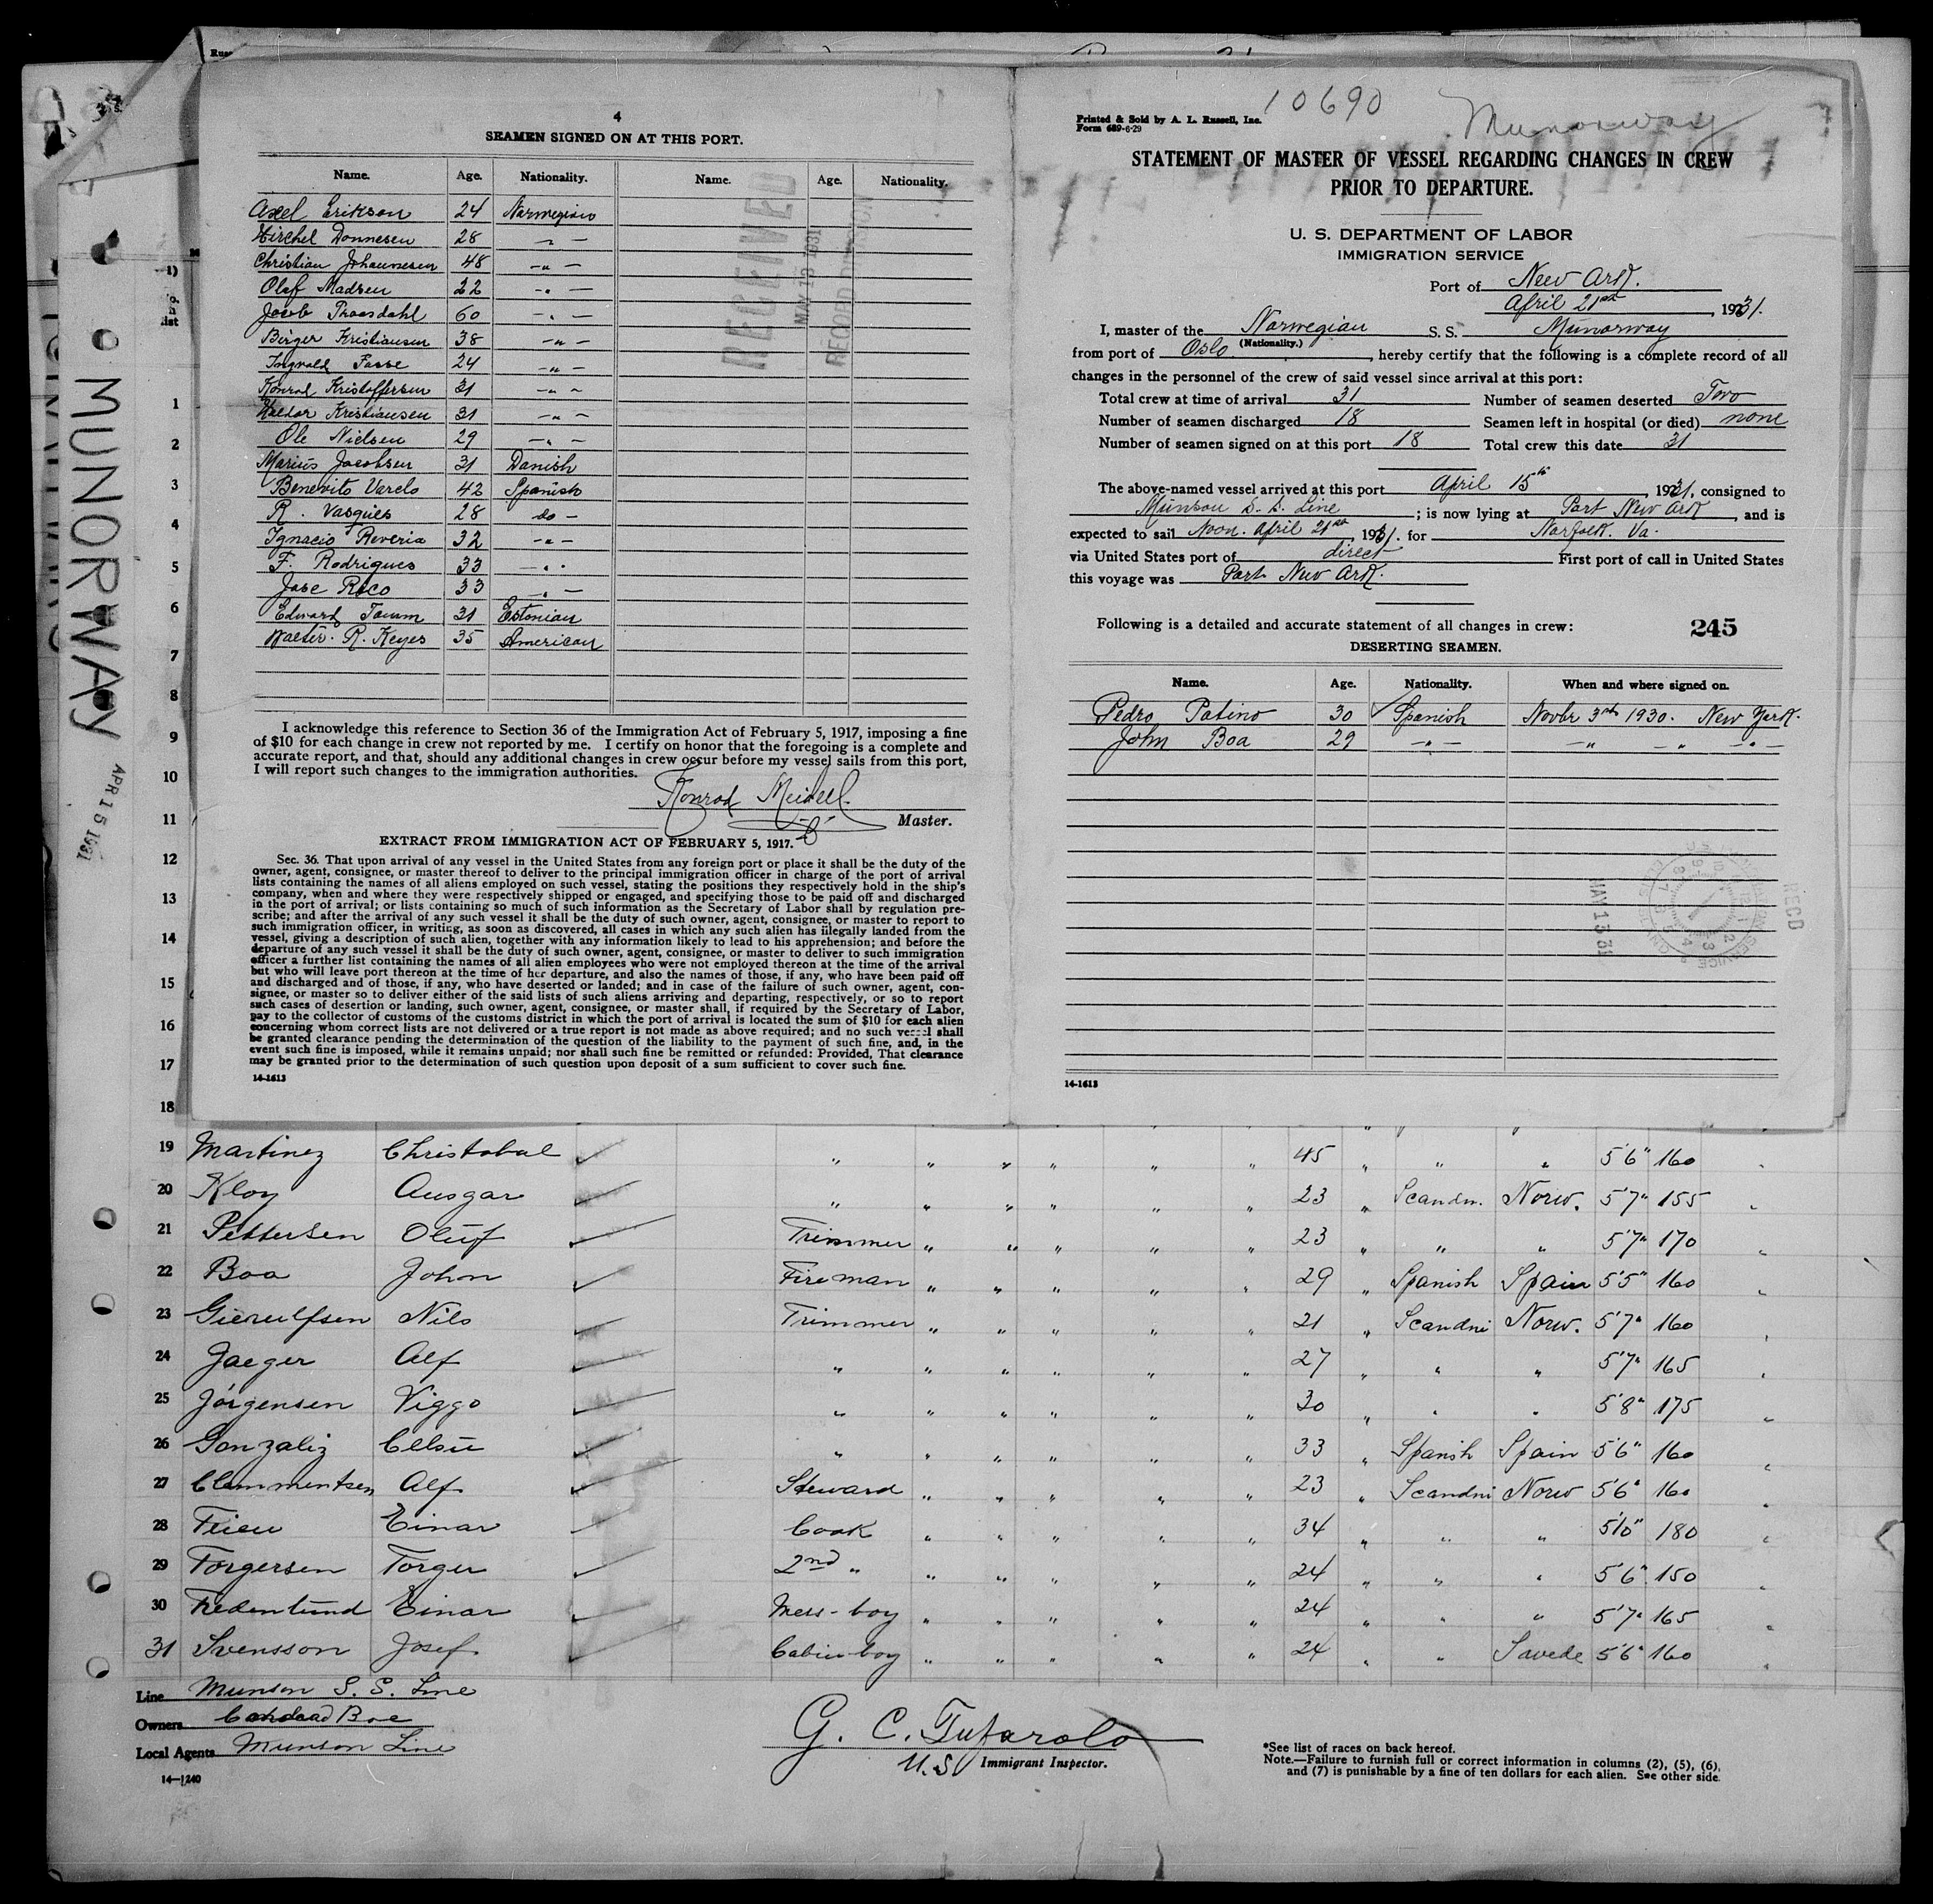 4
SEAMEN SIGNED ON AT THIS PORT.
Name. Age. Nationality. Name. Age. Nationality.
Axel Erikson 24 Norwegian
Hirchel Donnesen 28 -"-
Christian Johannesen 48 -"-
Olaf Madsen 22 -"-
Jacob 60 -"-
Birger Kristiansen 38 -"-
Ingvald Fasse 24 -"-
Konrad Kristoffersen 31 -"-
Haldor Kristiansen 31 -"-
Ole Nielsen 29 -"-
Marius Jacobsen 31 Danish
Benevito Varelo 42 Spanish
R. Vasques 28 do -
Ignacio Reveria 32 -"-
F. Rodrigues 33 -"-
Jose Roco 33 -"-
Edward Tamm 31 Estonian
Walter. R. Keyes 35 American
RECEIVED
MAY 13 1931
RECORD DIVISION
I acknowledge this reference to Section 36 of the Immigration Act of February 5, 1917, imposing a fine
of $10 for each change in crew not reported by me. I certify on honor that the foregoing is a complete and
accurate report, and that, should any additional changes in crew occur before my vessel sails from this port,
I will report such changes to the immigration authorities.
Konrad Meidell
Master.
EXTRACT FROM IMMIGRATION ACT OF FEBRUARY 5, 1917.
Sec. 36. That upon arrival of any vessel in the United States from any foreign port or place it shall be the duty of the
owner, agent, consignee, or master thereof to deliver to the principal immigration officer in charge of the port of arrival
lists containing the names of all aliens employed on such vessel, stating the positions they respectively hold in the ship's
company, when and where they were respectively shipped or engaged, and specifying those to be paid off and discharged
in the port of arrival; or lists containing so much of such information as the Secretary of Labor shall by regulation pre-
scribe; and after the arrival of any such vessel it shall be the duty of such owner, agent, consignee, or master to report to
such immigration officer, in writing, as soon as discovered, all cases in which any such alien has illegally landed from the
vessel, giving a description of such alien, together with any information likely to lead to his apprehension; and before the
departure of any such vessel it shall be the duty of such owner, agent, consignee, or master to deliver to such immigration
officer a further list containing the names of all alien employees who were not employed thereon at the time of the arrival
but who will leave port thereon at the time of her departure, and also the names of those, if any, who have been paid off
and discharged and of those, if any, who have deserted or landed; and in case of the failure of such owner, agent, con-
signee, or master so to deliver either of the said lists of such aliens arriving and departing, respectively, or so to report
such cases of desertion or landing, such owner, agent, consignee, or master shall, if required by the Secretary of Labor,
pay to the collector of customs of the customs district in which the port of arrival is located the sum of $10 for each alien
concerning whom correct lists are not delivered or a true report is not made as above required; and no such vessel shall
be granted clearance pending the determination of the question of the liability to the payment of such fine, and, in the
event such fine is imposed, while it remains unpaid; nor shall such fine be remitted or refunded: Provided, That clearance
may be granted prior to the determination of such question upon deposit of a sum sufficient to cover such fine.
14-1613
Printed & Sold by A. L. Russell, Inc.
Form 689-6-29
10690
Munorway
STATEMENT OF MASTER OF VESSEL REGARDING CHANGES IN CREW
PRIOR TO DEPARTURE.
U. S. DEPARTMENT OF LABOR
IMMIGRATION SERVICE
Port of New Ark.
April 21st, 1931.
I, master of the Norwegian S. S. Munorway
(Nationality.)
from port of Oslo, hereby certify that the following is a complete record of all
changes in the personnel of the crew of said vessel since arrival at this port:
Total crew at time of arrival 31 Number of seamen deserted Two
Number of seamen discharged 18 Seamen left in hospital (or died) none
Number of seamen signed on at this port 18 Total crew this date 31
The above-named vessel arrived at this port April 15th, 1931, consigned to
Munson S. S. Line; is now lying at Port New Ark, and is
expected to sail Noon. April 21st, 1931. for Norfolk. Va.
via United States port of direct First port of call in United States
this voyage was Port New Ark.
Following is a detailed and accurate statement of all changes in crew: 245
DESERTING SEAMEN.
Name. Age. Nationality. When and where signed on.
Pedro Patino 30 Spanish Novbr 3rd 1930. New York.
John Boa 29 -"- -"- -"- -"-
MAY 13 31
RECD
14-1613
MUNORWAY
APR 15 1931
1
2
3
4
5
6
7
8
9
10
11
12
13
14
15
16
17
18
19 Martinez Christobal " " " " " " 45 " " " 5'6" 160 "
20 Kloy Ausgar " " " " " " 23 " Scandn. Norw. 5'7" 155 "
21 Pettersen Oluf Trimmer " " " " " 23 " " " 5'7" 170 "
22 Boa John Fireman " " " " " 29 " Spanish Spain 5'5" 160 "
23 Gierulfsen Nils Trimmer " " " " " 21 " Scandni Norw. 5'7" 160 "
24 Jaeger Alf " " " " " " 27 " " " 5'7" 165 "
25 Jörgensen Viggo " " " " " " 30 " " " 5'8" 175 "
26 Gonzaliz Celsu " " " " " " 33 " Spanish Spain 5'6" 160 "
27 Clemmentsen Alf. Steward " " " " " 23 " Scandni Norw 5'6" 160 "
28 Einar Cook " " " " " 34 " " " 5'10" 180 "
29 Torgersen Torger 2nd " " " " " " 24 " " " 5'6" 150 "
30 Fredenlund Einar Mess-boy " " " " " 24 " " " 5'7" 165 "
31 Svensson Josef. Cabin boy " " " " " 24 " " Swede 5'6" 160 "
Line Munson S. S. Line
Owners Boe
Local Agents Munson Line
14-1240
G. C. Tufarolo
U.S. Immigrant Inspector.
*See list of races on back hereof.
Note.—Failure to furnish full or correct information in columns (2), (5), (6),
and (7) is punishable by a fine of ten dollars for each alien. See other side.